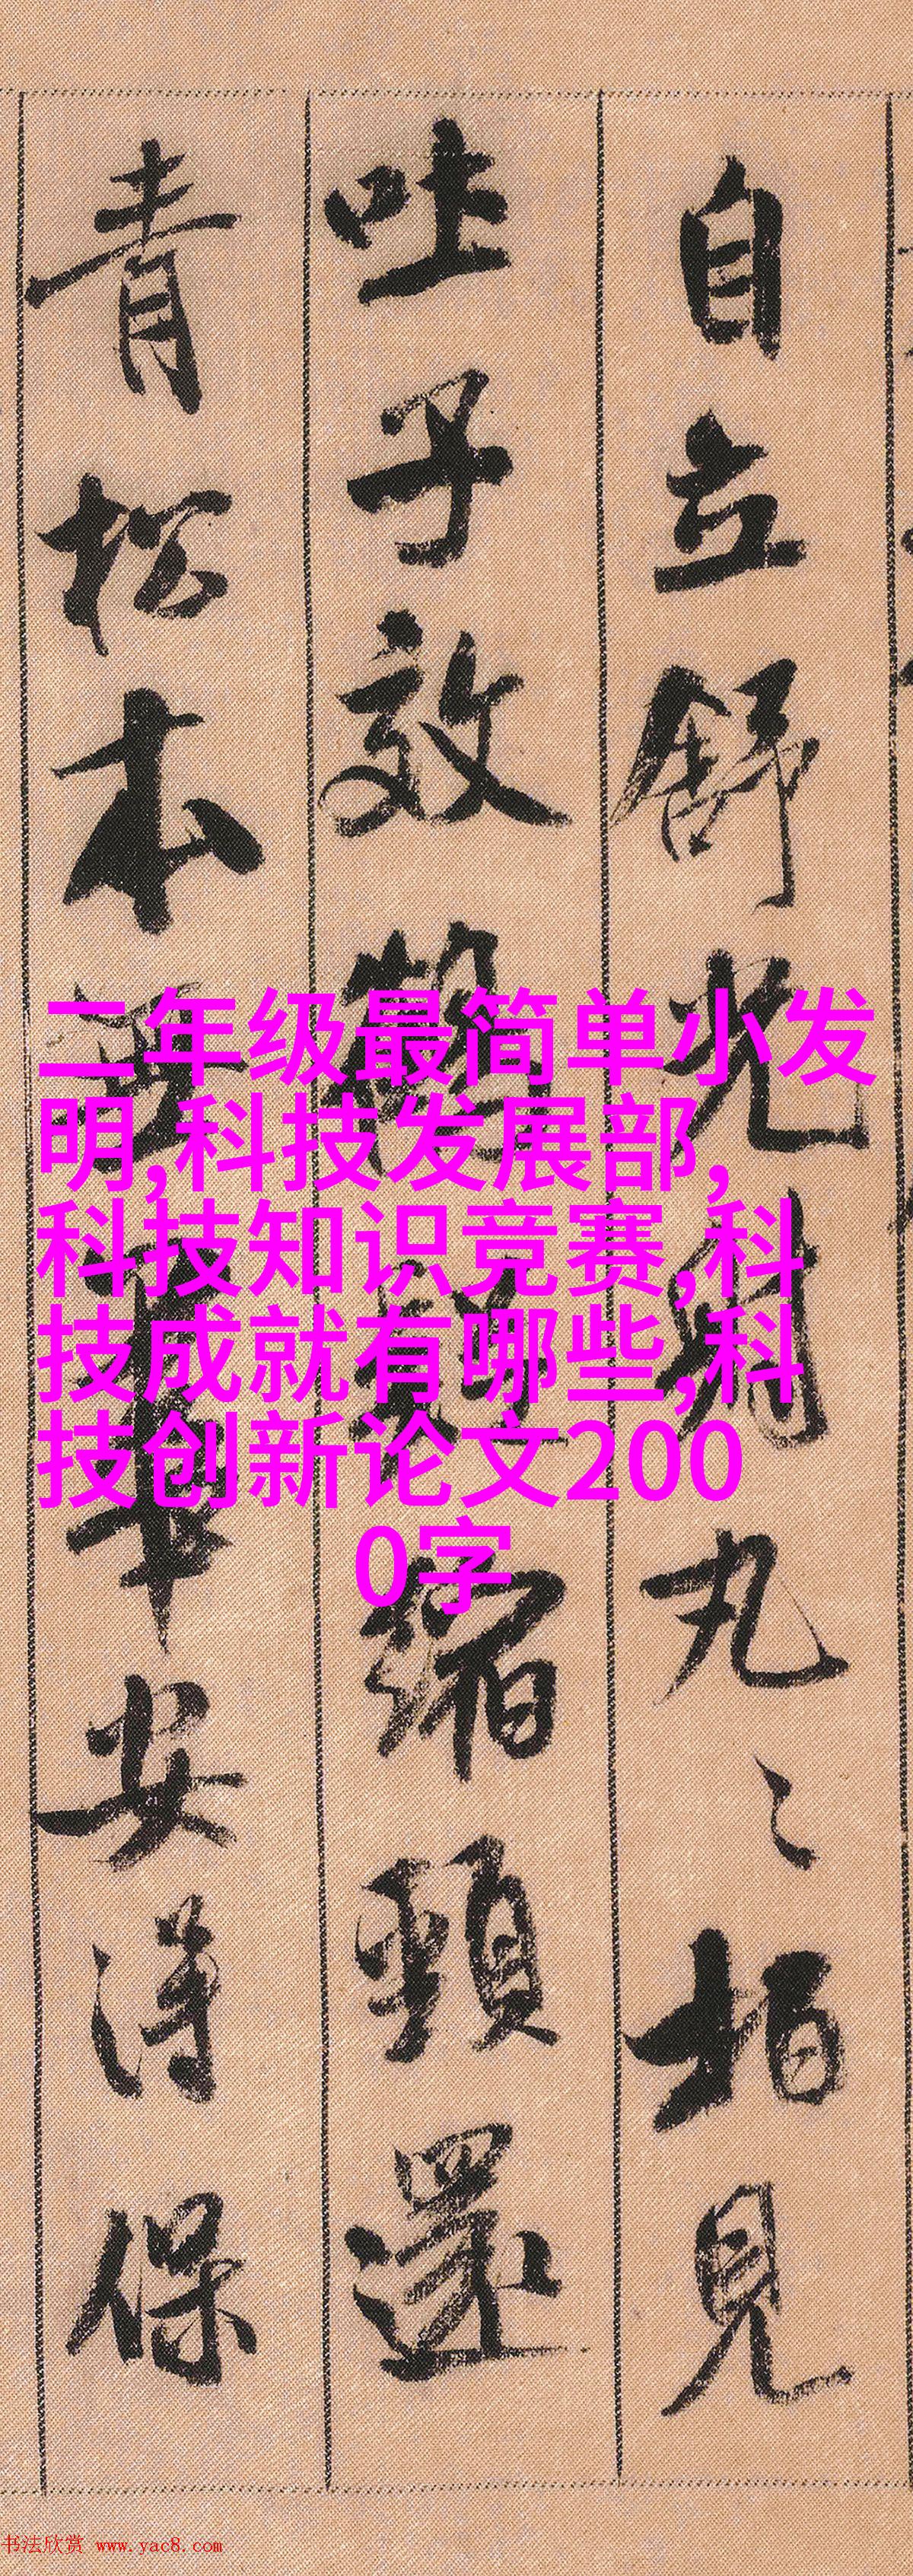 自立舒光射丸〻柏見
吐子效鶴疑縮頸還
青松本無華安得保
二年级最简单小发
明,科技发展部,
科技知识竞赛,科
技成就有哪些,科
技创新论文200
0字
书法欣赏 www.yac8.com